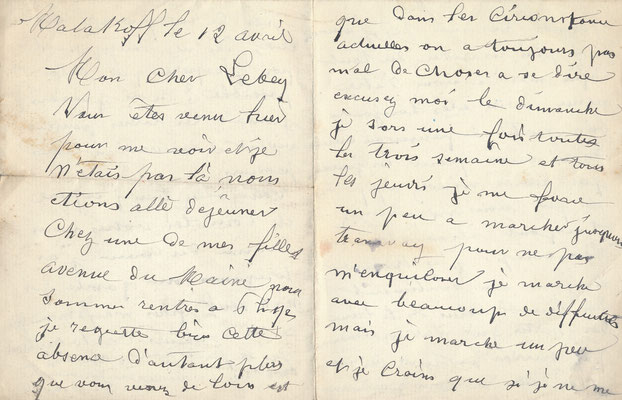 Malakoff le 12 avril
Mon cher Lebey
Vous êtes venu hier
pour me voir et je
n'étais pas là nous
étions allé déjeuner
Chez une de mes filles
avenue du Maine nous
sommes rentrés a 6 h
je regrette bien cette
absence d'autant plus
que vous venez de loin et
que dans les cirionstance
actuelles on a toujours pas
mal de choses a se dire
excusez moi le dimanche
je sors une fois toutes
les trois semaine et tous
les jeudis je me force
un peu a marcher jusqu'au
tramway pour ne pas
m'enquiloser je marche
avec beaucoup de difficultés
mais je marche un peu
et je crains que si je ne me